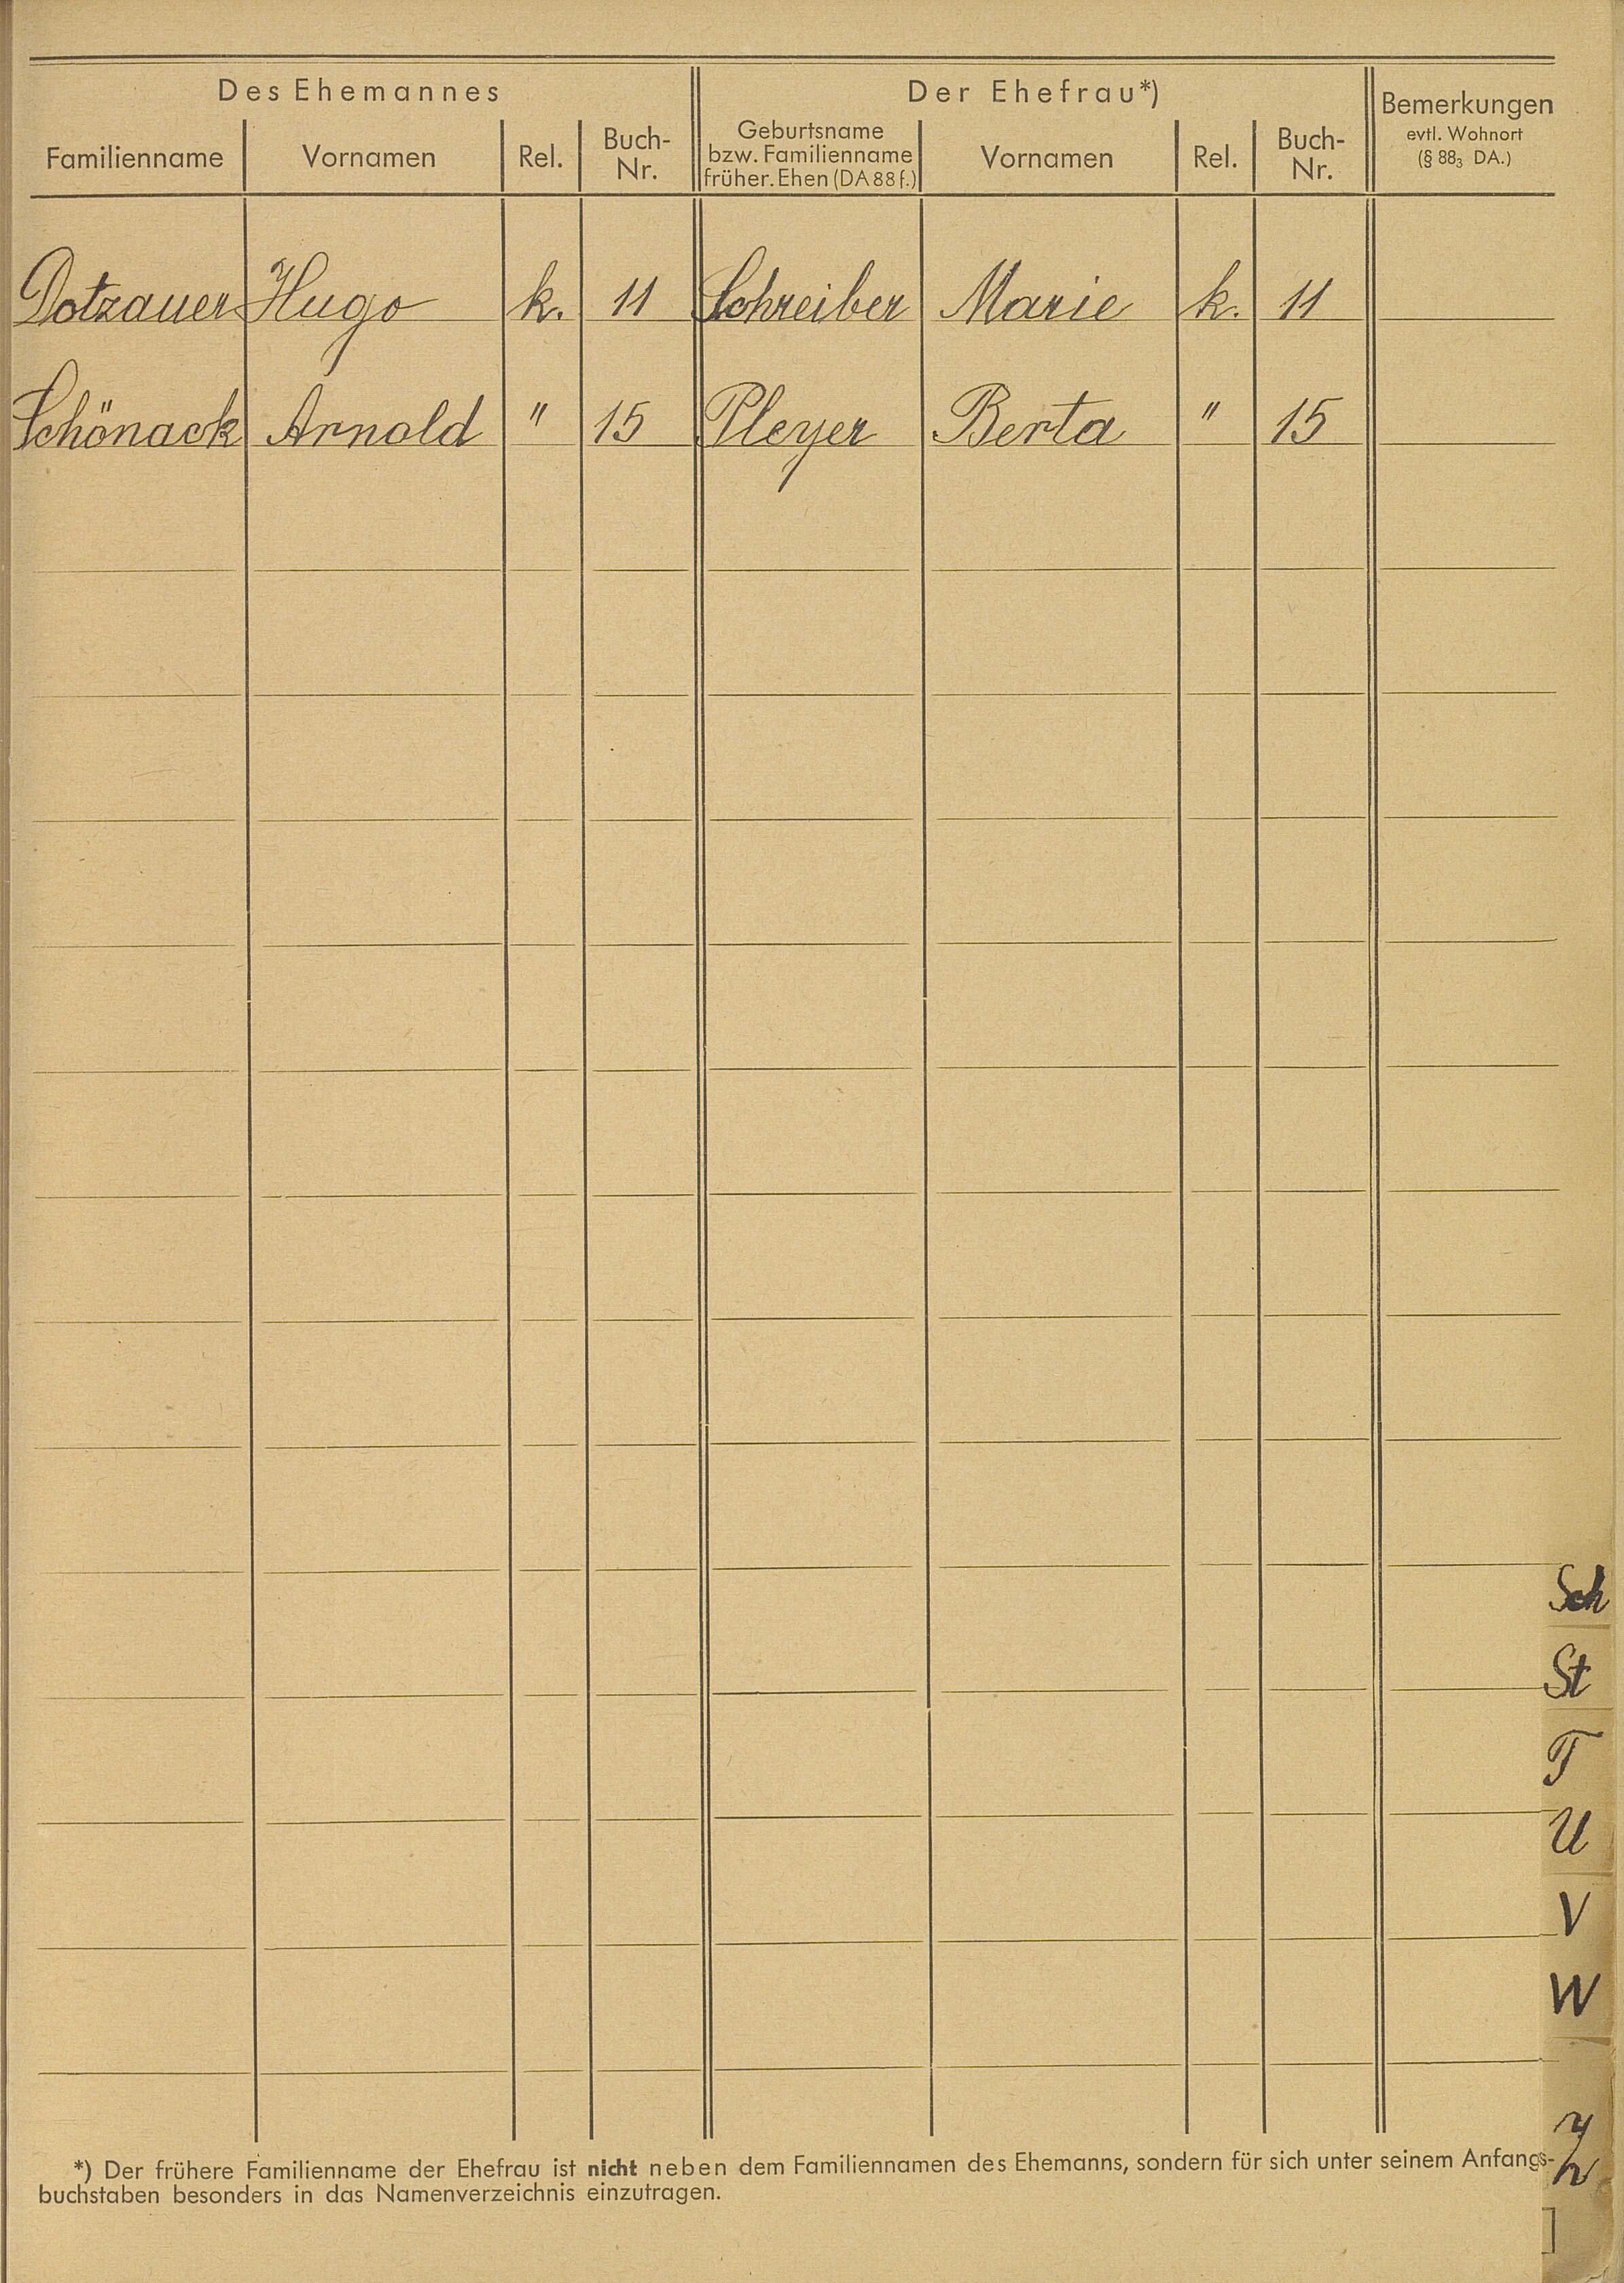 Des Ehemannes Der Ehefrau*) Bemerkungen
evtl. Wohnort
(§ 88₃ DA.)
Familienname Vornamen Rel. Buch-Nr. Geburtsname bzw. Familienname früher. Ehen (DA 88 f.) Vornamen Rel. Buch-Nr.
Dotzauer Hugo k. 11 Schreiber Marie k. 11
Schönack Arnold " 15 Pleyer Berta " 15
Sch
St
T
U
V
W
*) Der frühere Familienname der Ehefrau ist nicht neben dem Familiennamen des Ehemanns, sondern für sich unter seinem Anfangs-
buchstaben besonders in das Namenverzeichnis einzutragen.